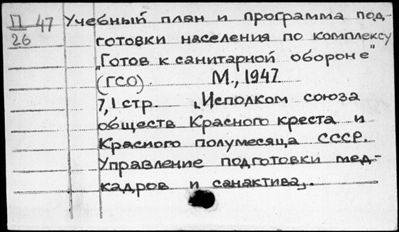 П 47 Учебный план и программа под-
26 готовки населения по комплексу
„Готов к санитарной обороне"
(ГСО) М., 1947
7,1 стр. „Исполком союза
обществ Красного креста и
Красного полумесяца СССР.
Управление подготовки мед-
кадров и санактива„.